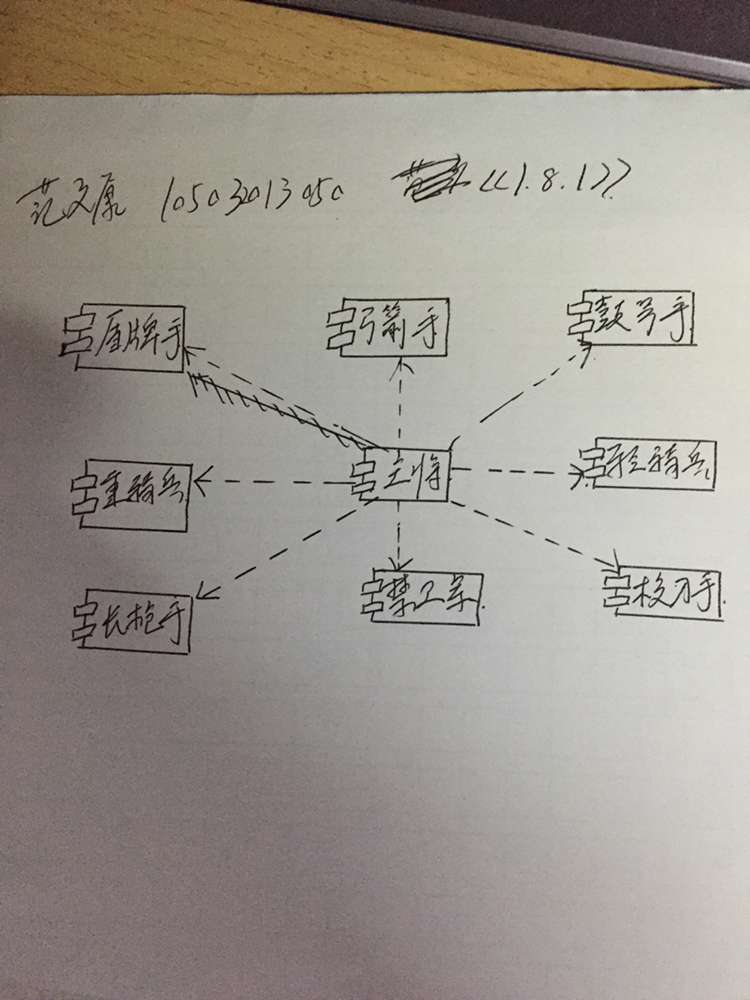 范文康 10503013050 《1.8.1》
盾牌手 弓箭手 鼓号手
重骑兵 主将 轻骑兵
长枪手 禁卫军 校刀手